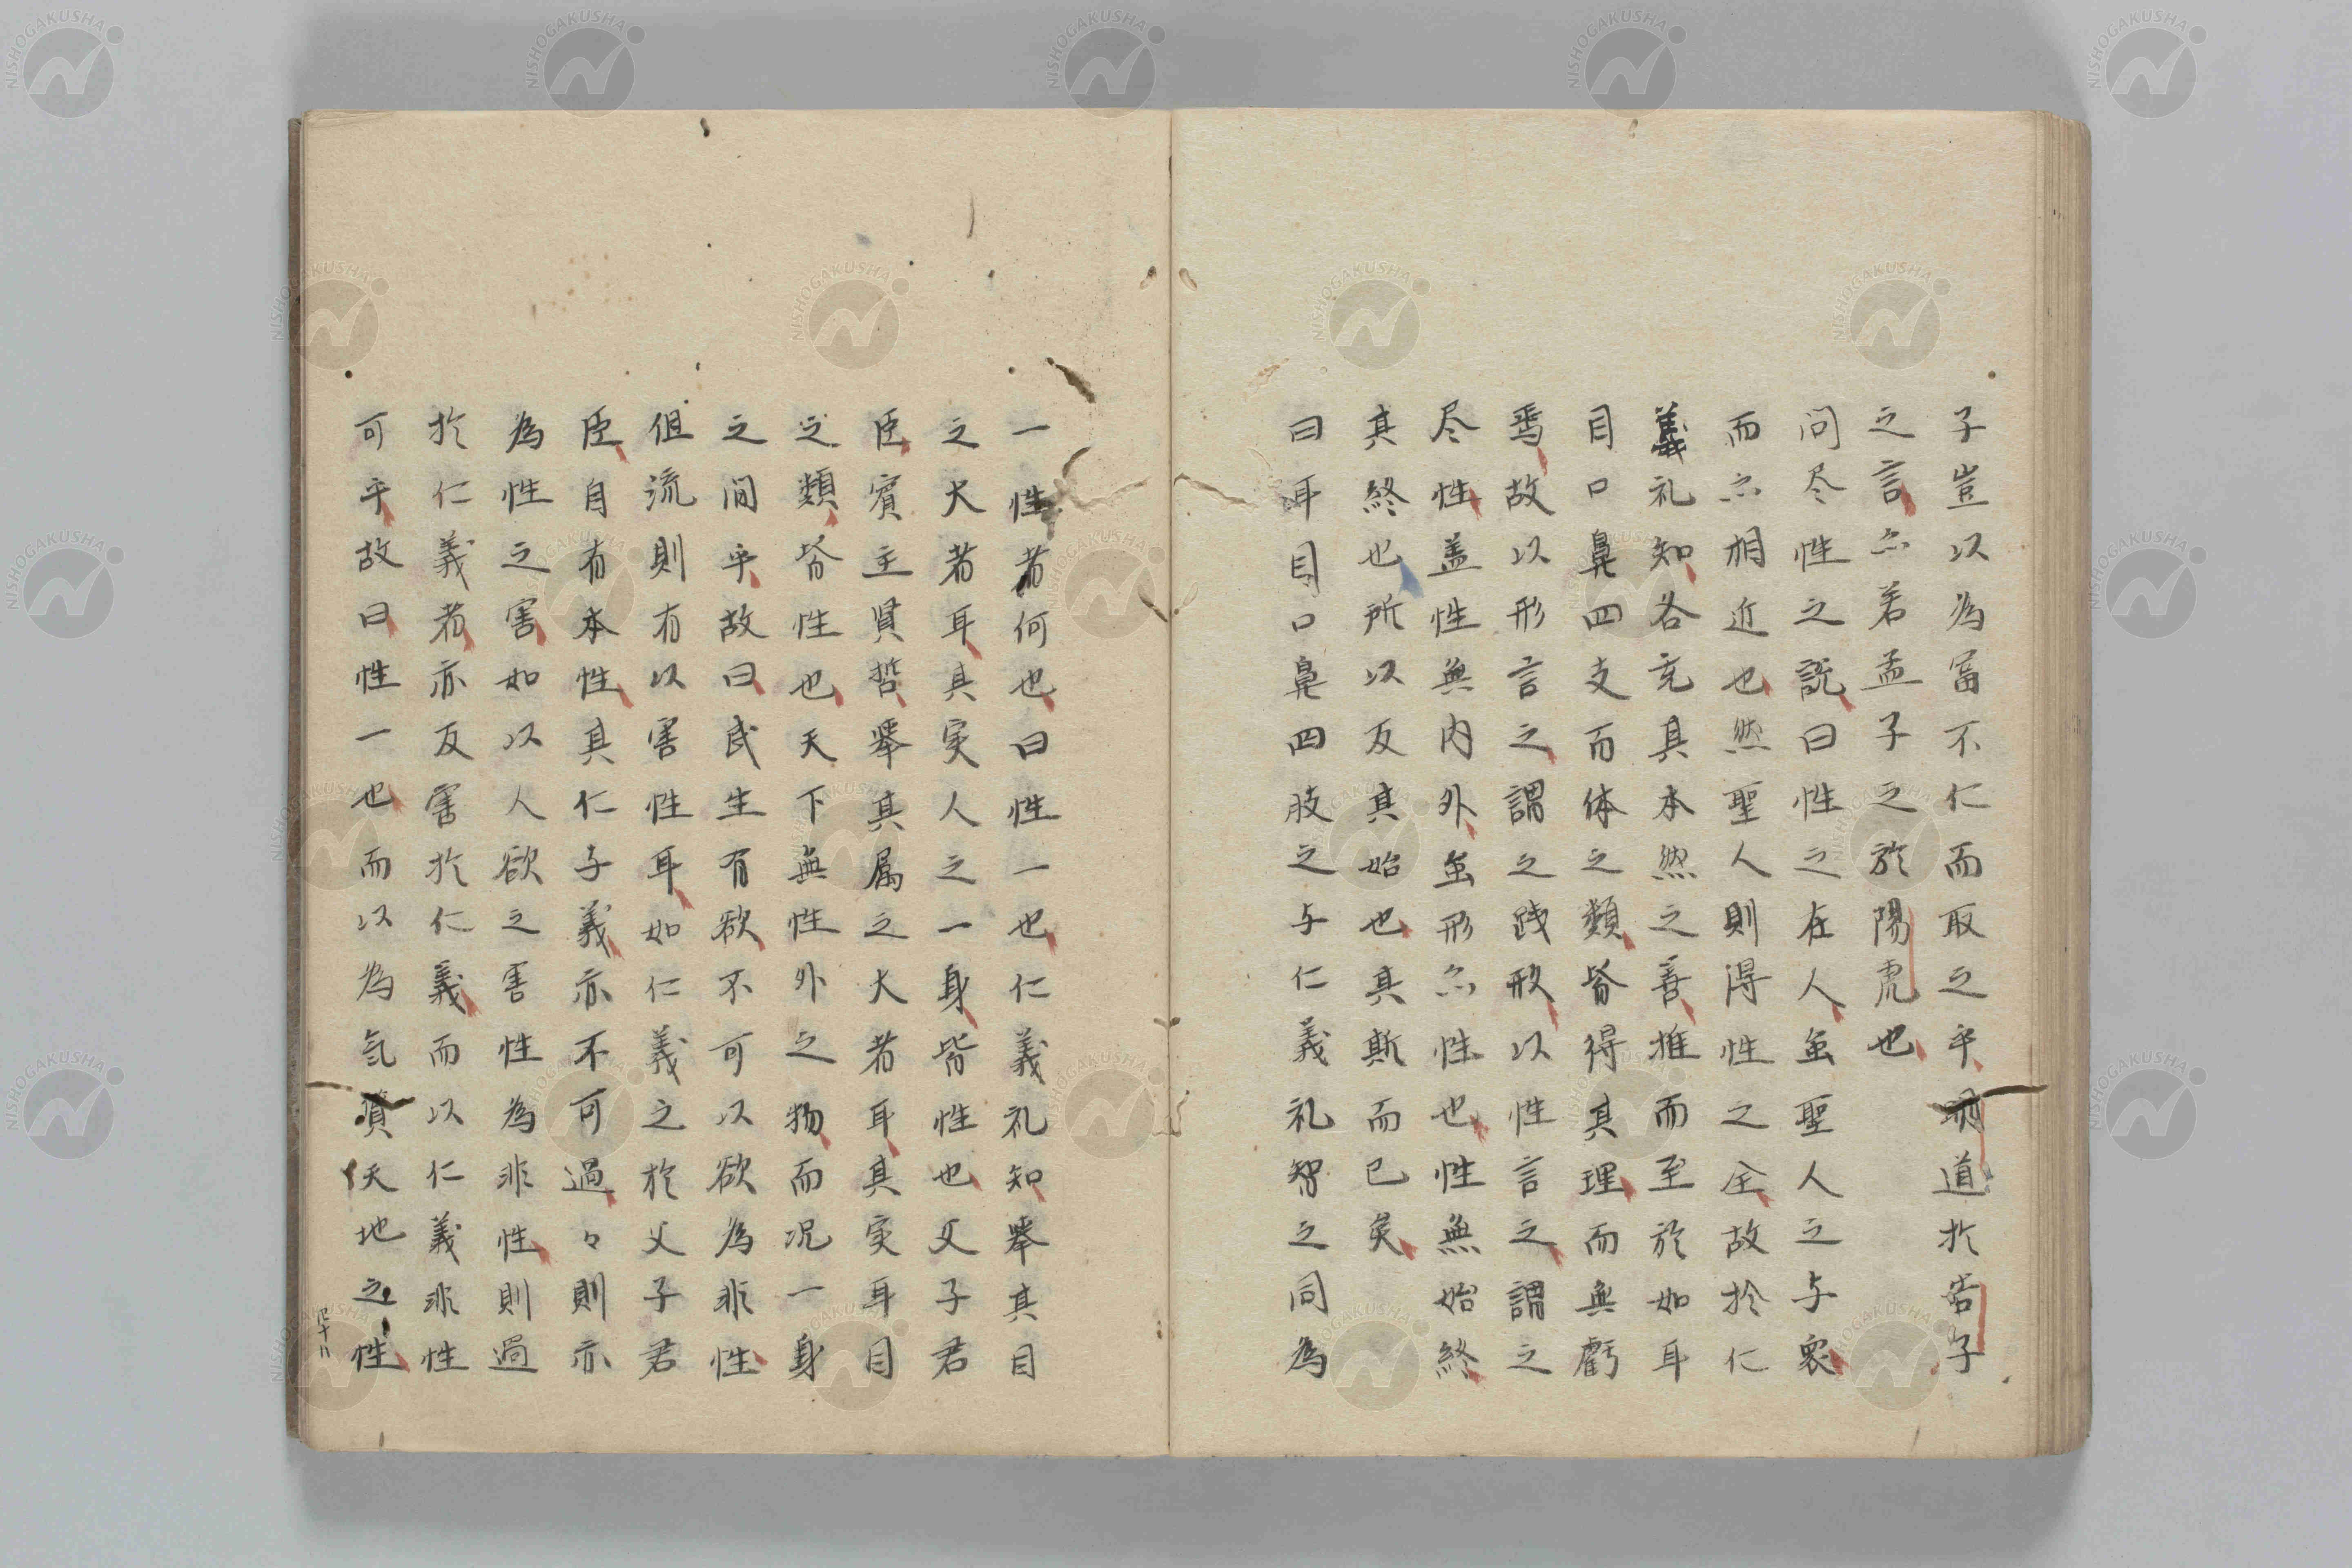 子豈以為富不仁而取之乎明道於告子
之言亦若孟子之於陽虎也
問尽性之説曰性之在人虽聖人之与衆
而亦相近也然聖人則得性之全故於仁
義礼知各充其本然之善推而至於如耳
目口鼻四支而体之類皆得其理而無虧
焉故以形言之謂之践形以性言之謂之
尽性盖性無内外虽形亦性也性無始終
其終也所以反其始也其斯而已矣
曰耳目口鼻四肢之与仁義礼智之同為
一性者何也曰性一也仁義礼知舉其目
之大者耳其実人之一身皆性也父子君
臣賓主賢哲舉其属之大者耳其実耳目
之類皆性也天下無性外之物而况一身
之间乎故曰民生有欲不可以欲為非性
但流則有以害性耳如仁義之於父子君
臣自有本性其仁与義亦不可過々則亦
為性之害如以人欲之害性為非性則過
於仁義者亦反害於仁義而以仁義非性
可乎故曰性一也而以為気質天地之性
四十二
NISHOGAKUSHA